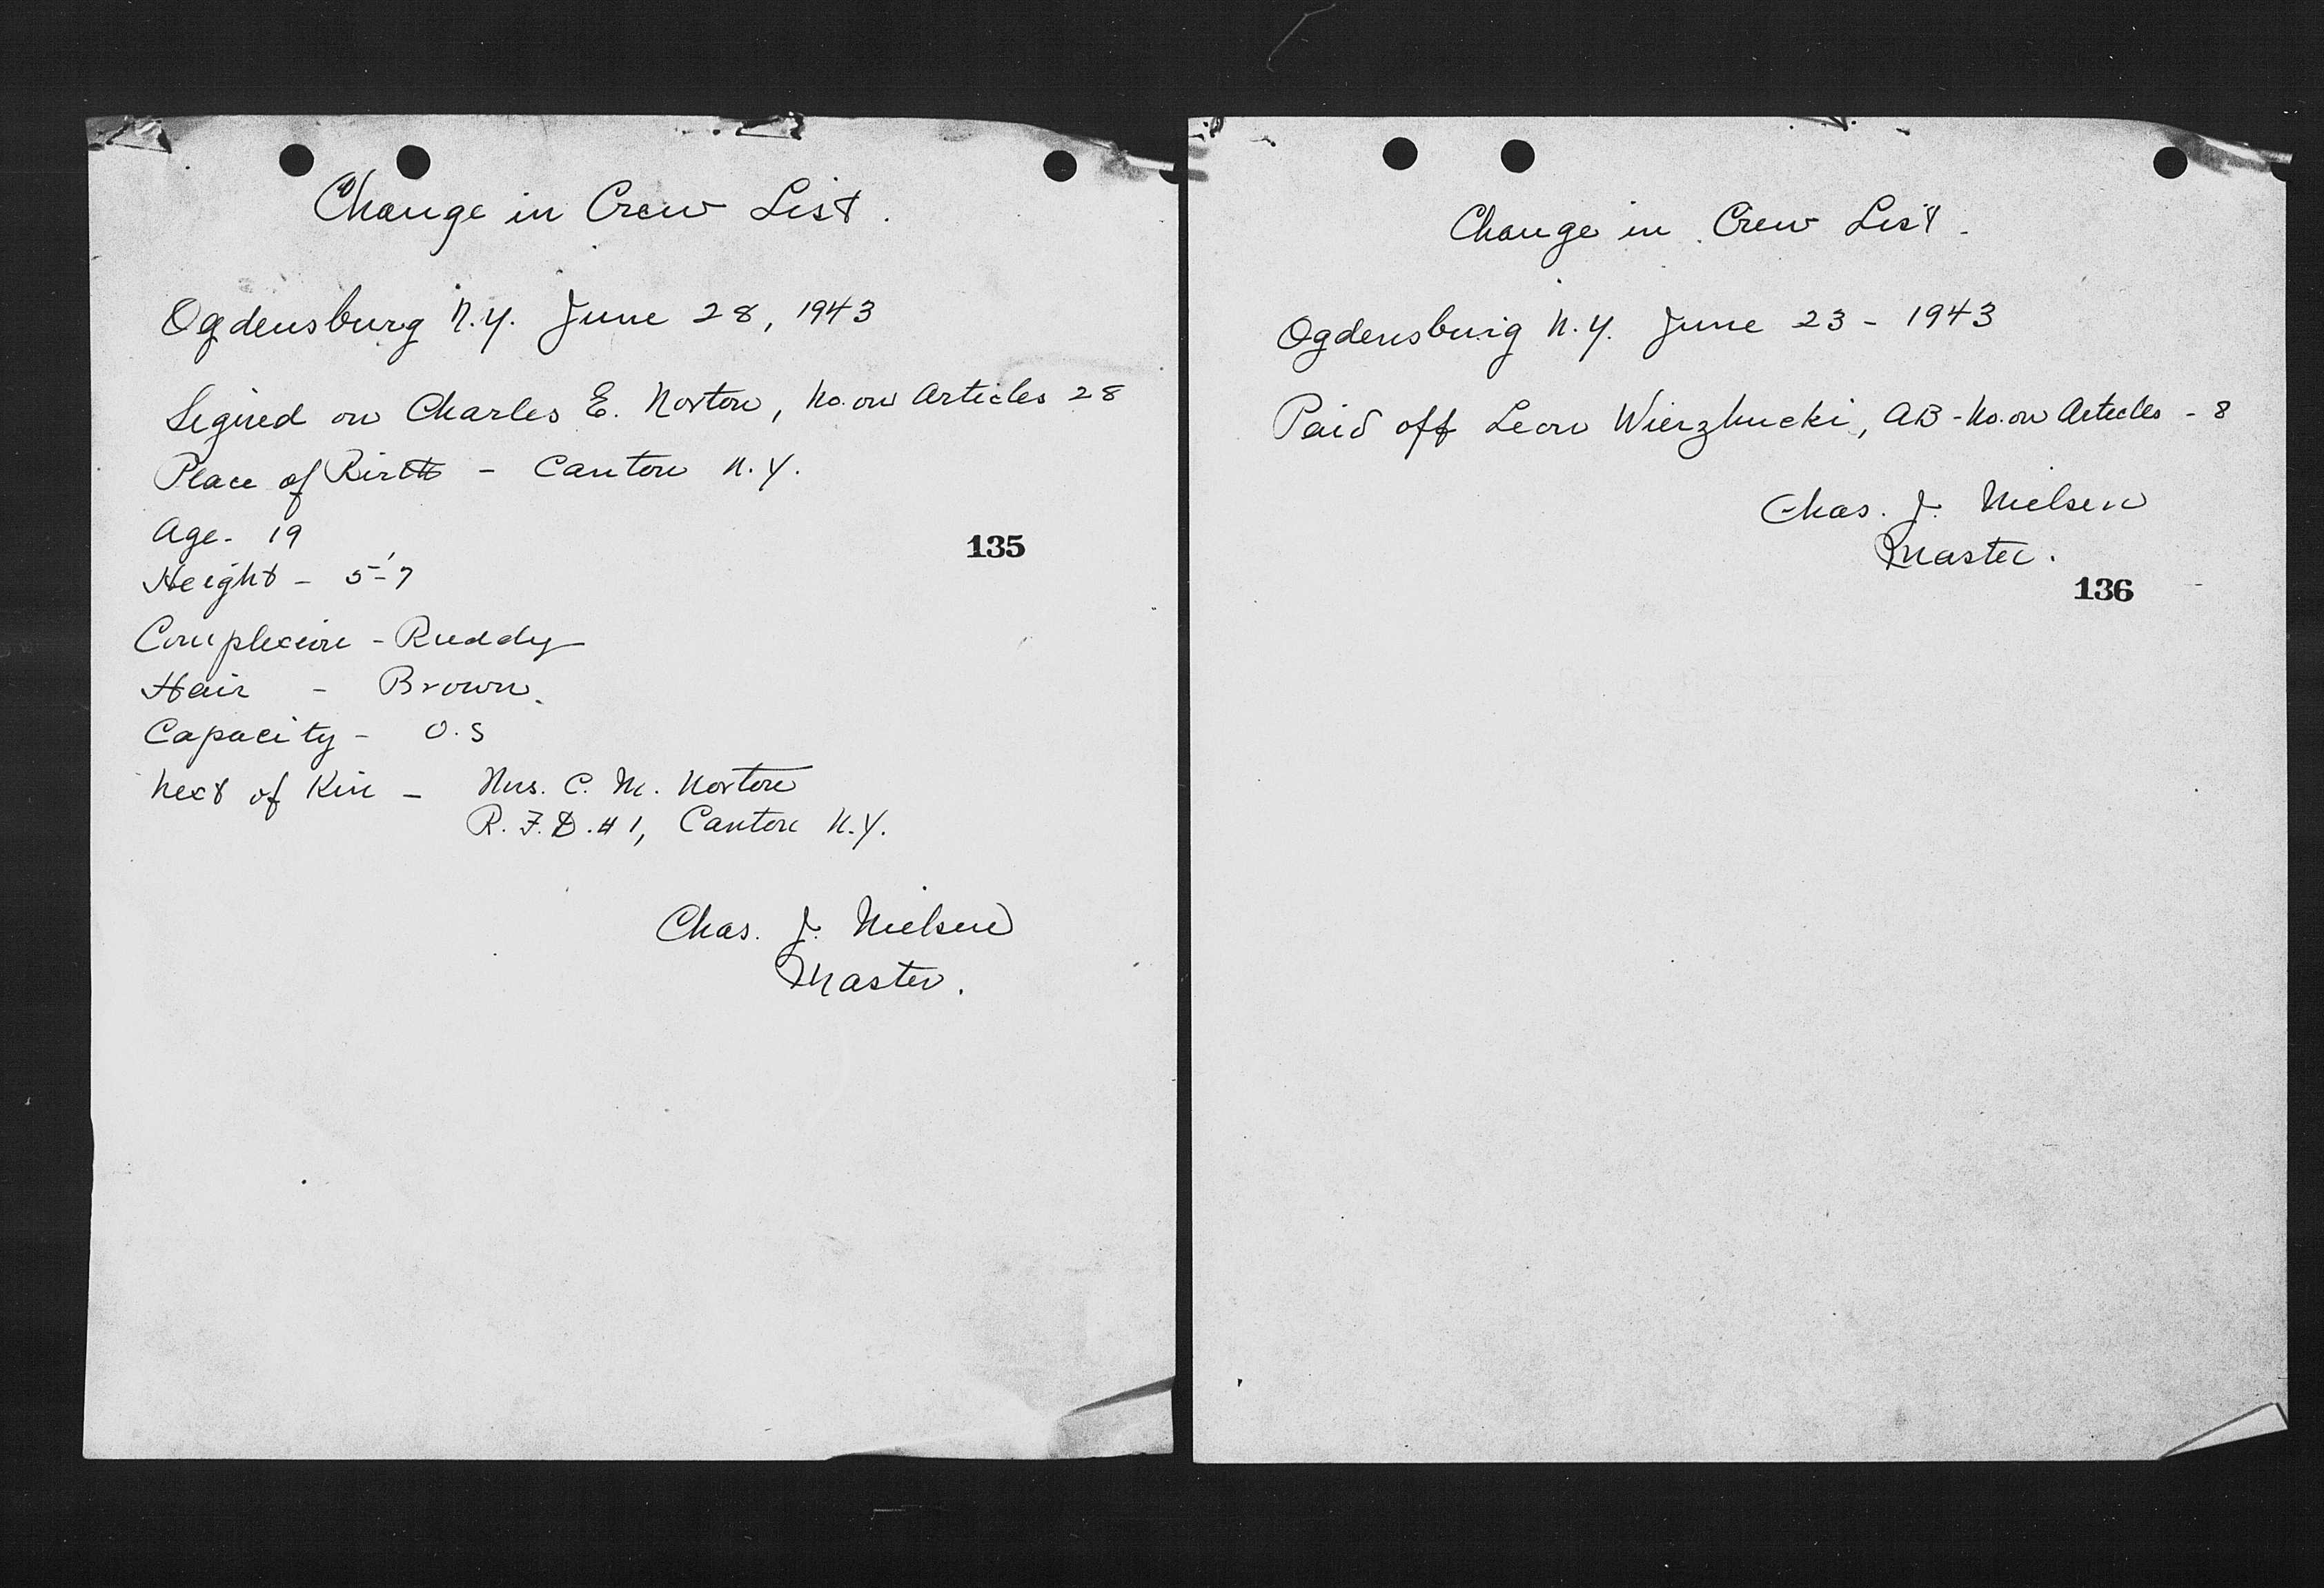 Change in Crew List.
Ogdensburg N.Y. June 28, 1943
Signed on Charles E. Norton, No. on Articles 28
Place of Birth - Canton N.Y.
Age - 19
135
Height - 5'-7
Complexion - Ruddy
Hair - Brown.
Capacity - O.S
Next of Kin - Mrs. C. M. Norton
R.F.D. #1, Canton N.Y.
Chas. J. Nielsen
Master.
Change in Crew List -
Ogdensburg N.Y. June 23 - 1943
Paid off Leon Wierzbucki, AB - No. on Articles - 8
Chas. J. Nielsen
Master.
136